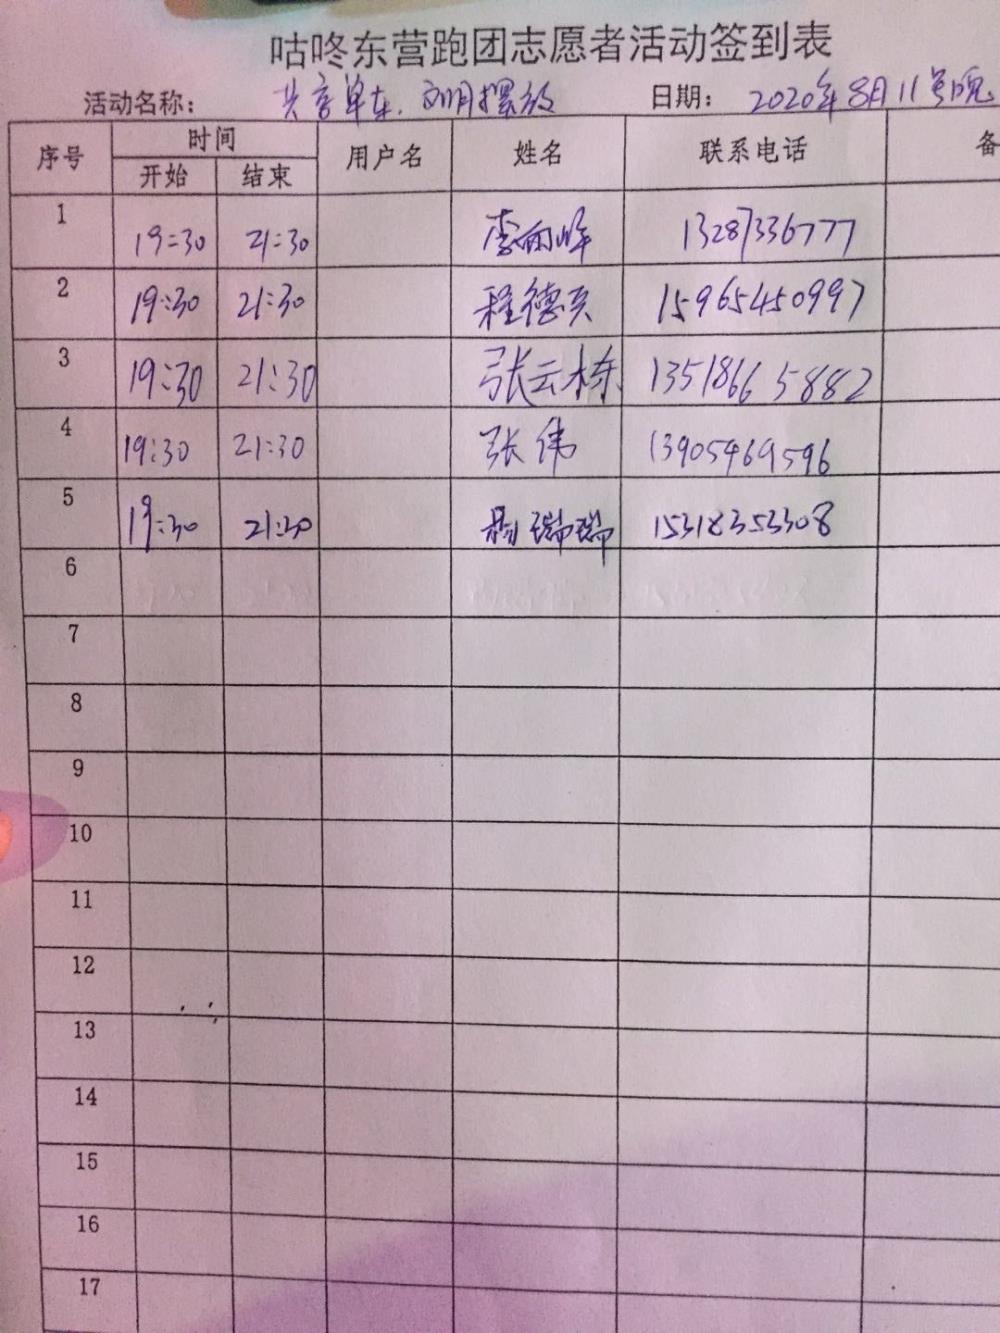 咕咚东营跑团志愿者活动签到表
活动名称： 共享单车. 文明摆放 日期： 2020年8月11号晚
序号 时间 用户名 姓名 联系电话 备
开始 结束
1 19:30 21:30 李雨峰 13287336777
2 19:30 21:30 程德兵 15965450997
3 19:30 21:30 张云栋 13518665882
4 19:30 21:30 张伟 13905469596
5 19:30 21:30 瑞瑞 15318353308
6
7
8
9
10
11
12
13
14
15
16
17